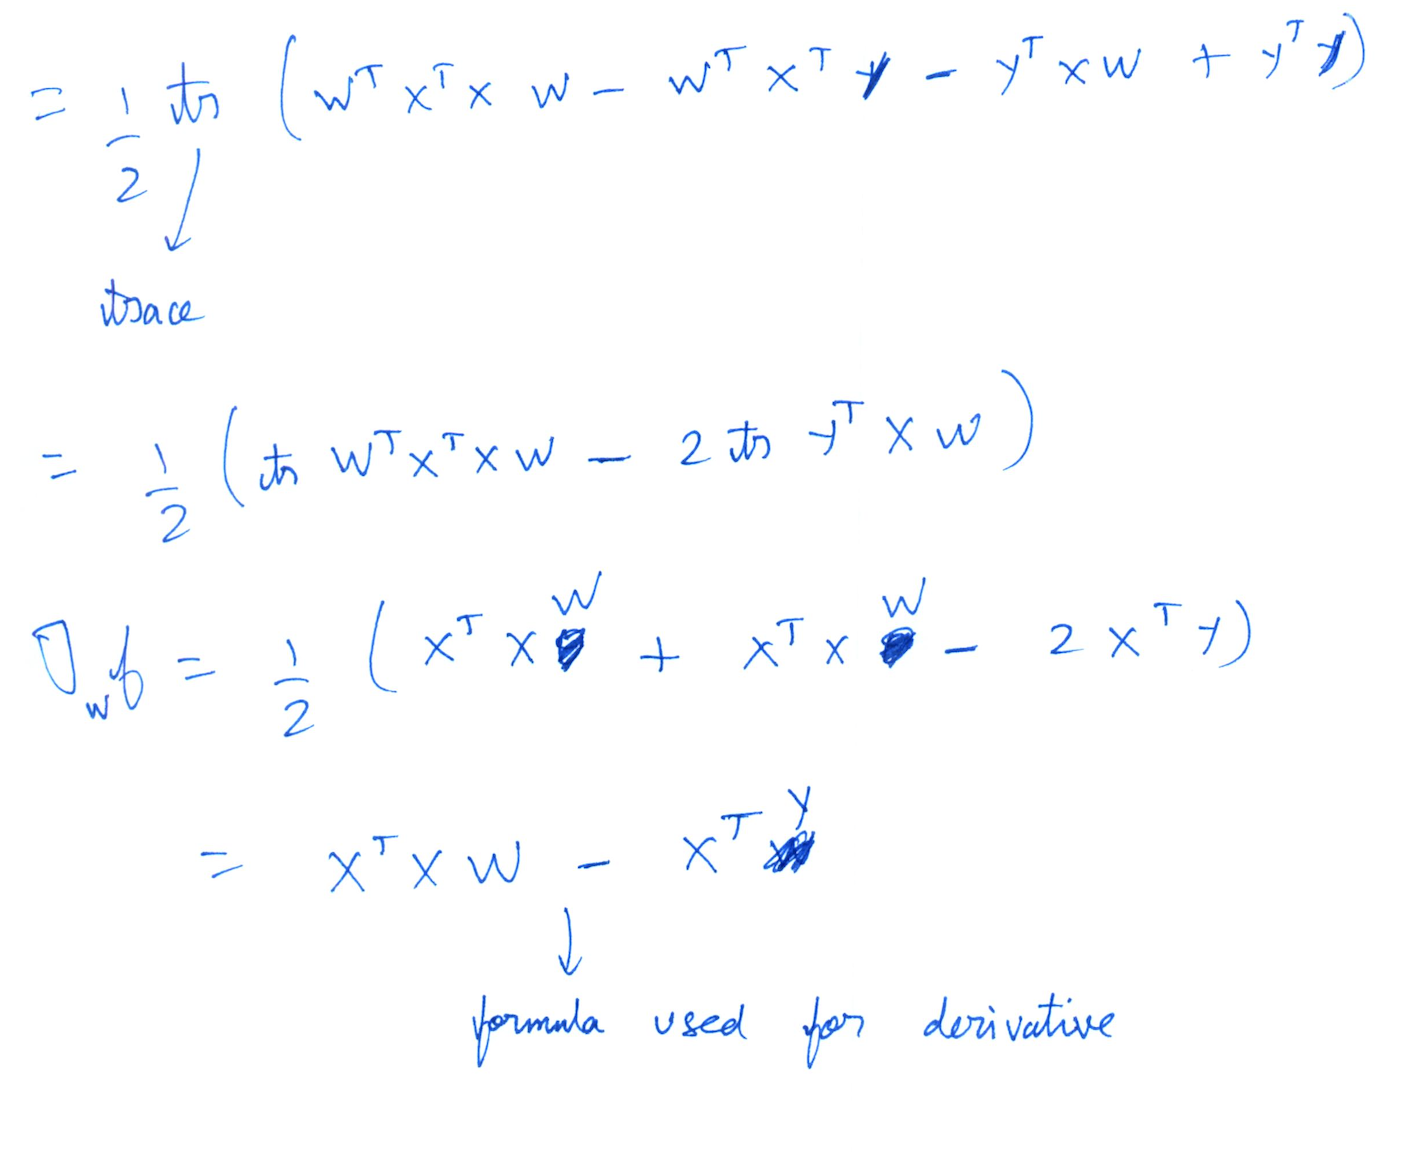 = 1/2 tr (W^T X^T X W - W^T X^T Y - Y^T X W + Y^T Y)
trace
= 1/2 (tr W^T X^T X W - 2 tr Y^T X W)
∇_W f = 1/2 (X^T X W + X^T X W - 2 X^T Y)
= X^T X W - X^T Y
formula used for derivative